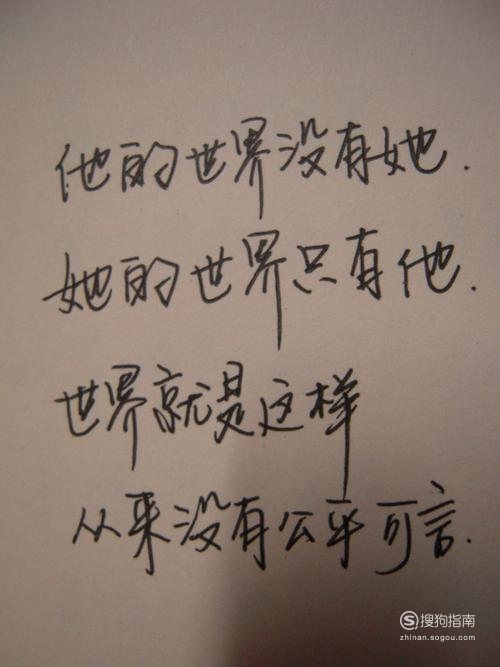 他的世界没有她.
她的世界只有他.
世界就是这样
从来没有公平可言.
搜狗指南
zhinan.sogou.com